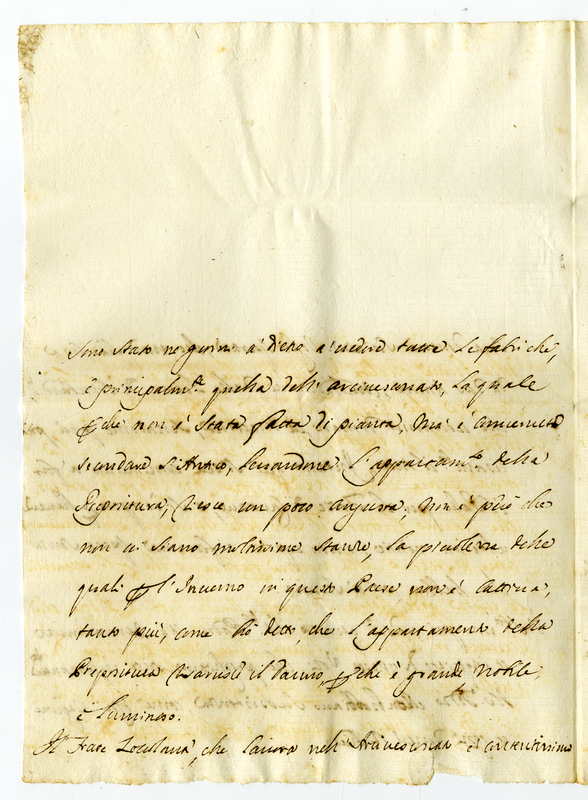 Sono stato ne giorni a' dietro a' vedere tutte le fabriche,
e principalm.te quella dell' arcivescovato, la quale
p che non è stata fatta di pianta, ma è convenuto
secondare l'Antico, levandone l'appartam.to della
Prepositura, riesce un poco angusta, non è però che
non ci siano moltissime stanze, la picolezza delle
quali p l'Inverno in questo Paese non è cattiva,
tanto più, come hò detto, che l'appartamento della
Prepositura risarcisce il danno, p che è grande nobile,
e luminoso.
Il Frate, che lavora nell' Arcivescovato è contentissimo